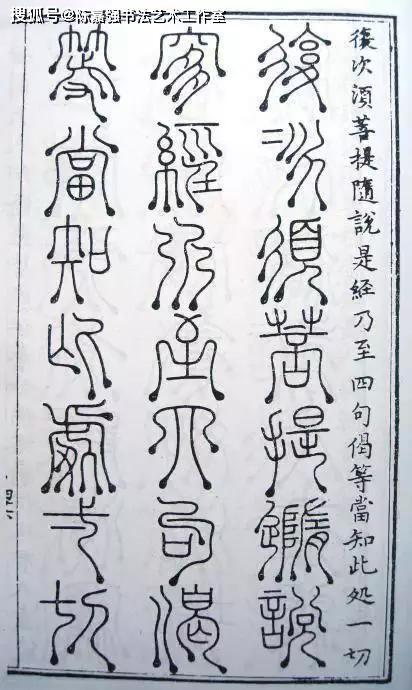 搜狐号@陈嘉强书法艺术工作室
復次湏菩提隨說是経乃至四句偈等當知此処一切
復次須菩提隨說
是經乃至四句偈
等當知此處一切